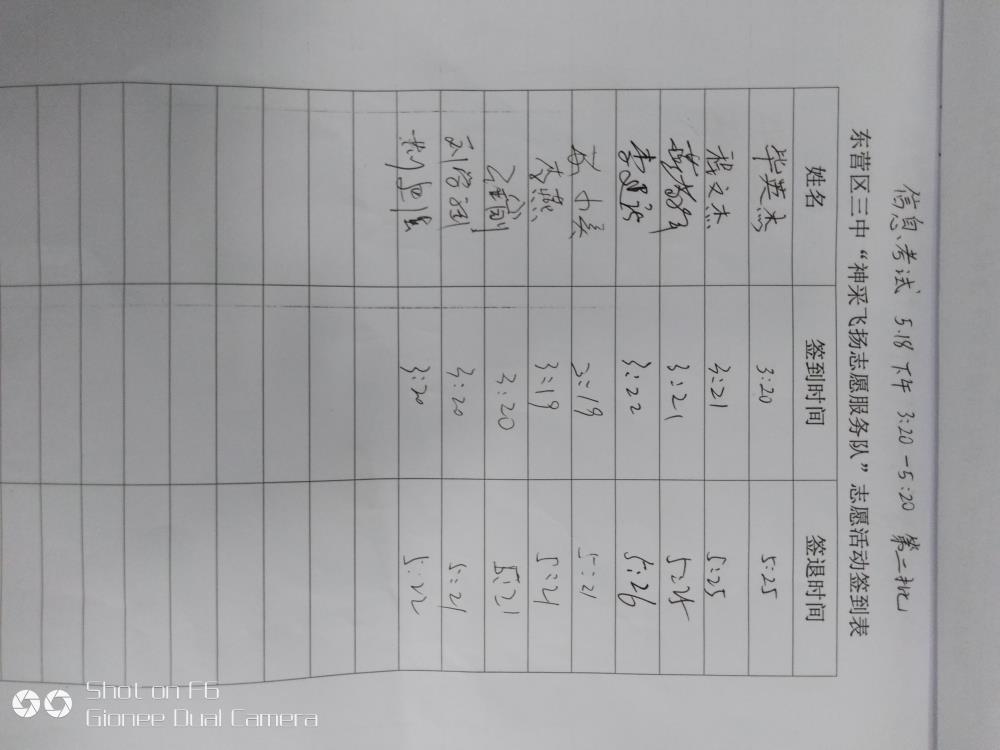 信息考试 5.18 下午 3:20-5:20 第二批
东营区三中“神采飞扬志愿服务队”志愿活动签到表
姓名 签到时间 签退时间
毕英杰 3:20 5:25
文杰 3:21 5:25
3:21 5:25
3:22 5:26
3:19 5:21
李燕 3:19 5:21
3:20 5:21
刘 3:20 5:21
3:20 5:22
Shot on F6
Gionee Dual Camera